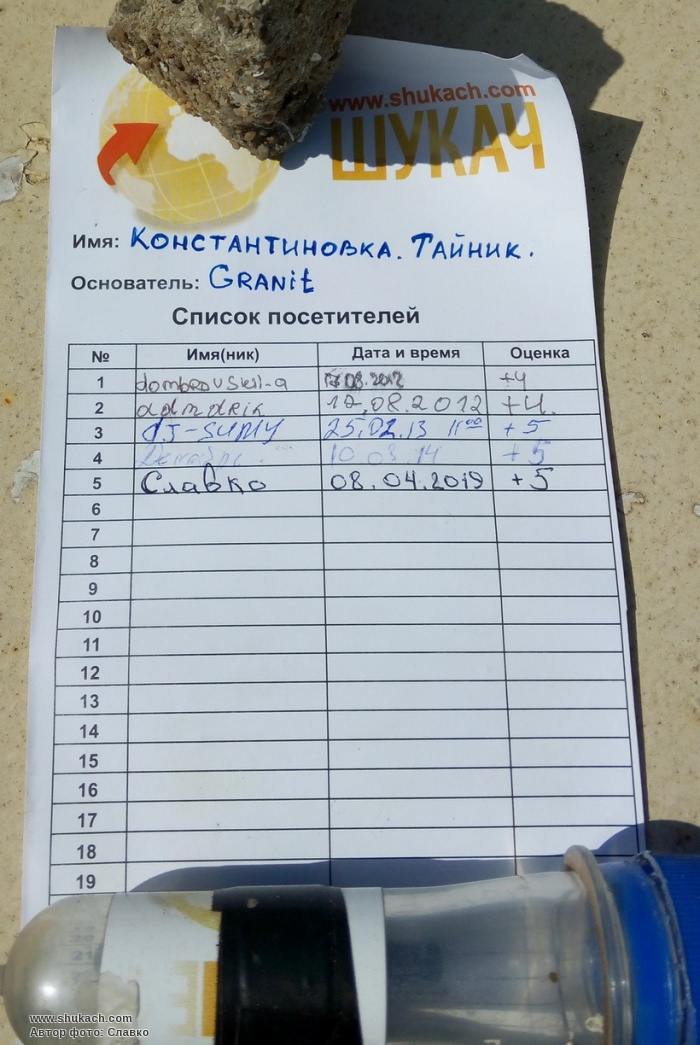 www.shukach.com
ШУКАЧ
Имя: Константиновка. Тайник.
Основатель: Granit
Список посетителей
№ Имя(ник) Дата и время Оценка
1 dombrovskii-a 17.08.2012 +4
2 17.08.2012 +4.
3 DJ-SUMY 25.02.13 11⁰⁰ +5
4 10 03 14 +5
5 Славко 08.04.2019 +5
6
7
8
9
10
11
12
13
14
15
16
17
18
19
20
21
www.shukach.com
Автор фото: Славко